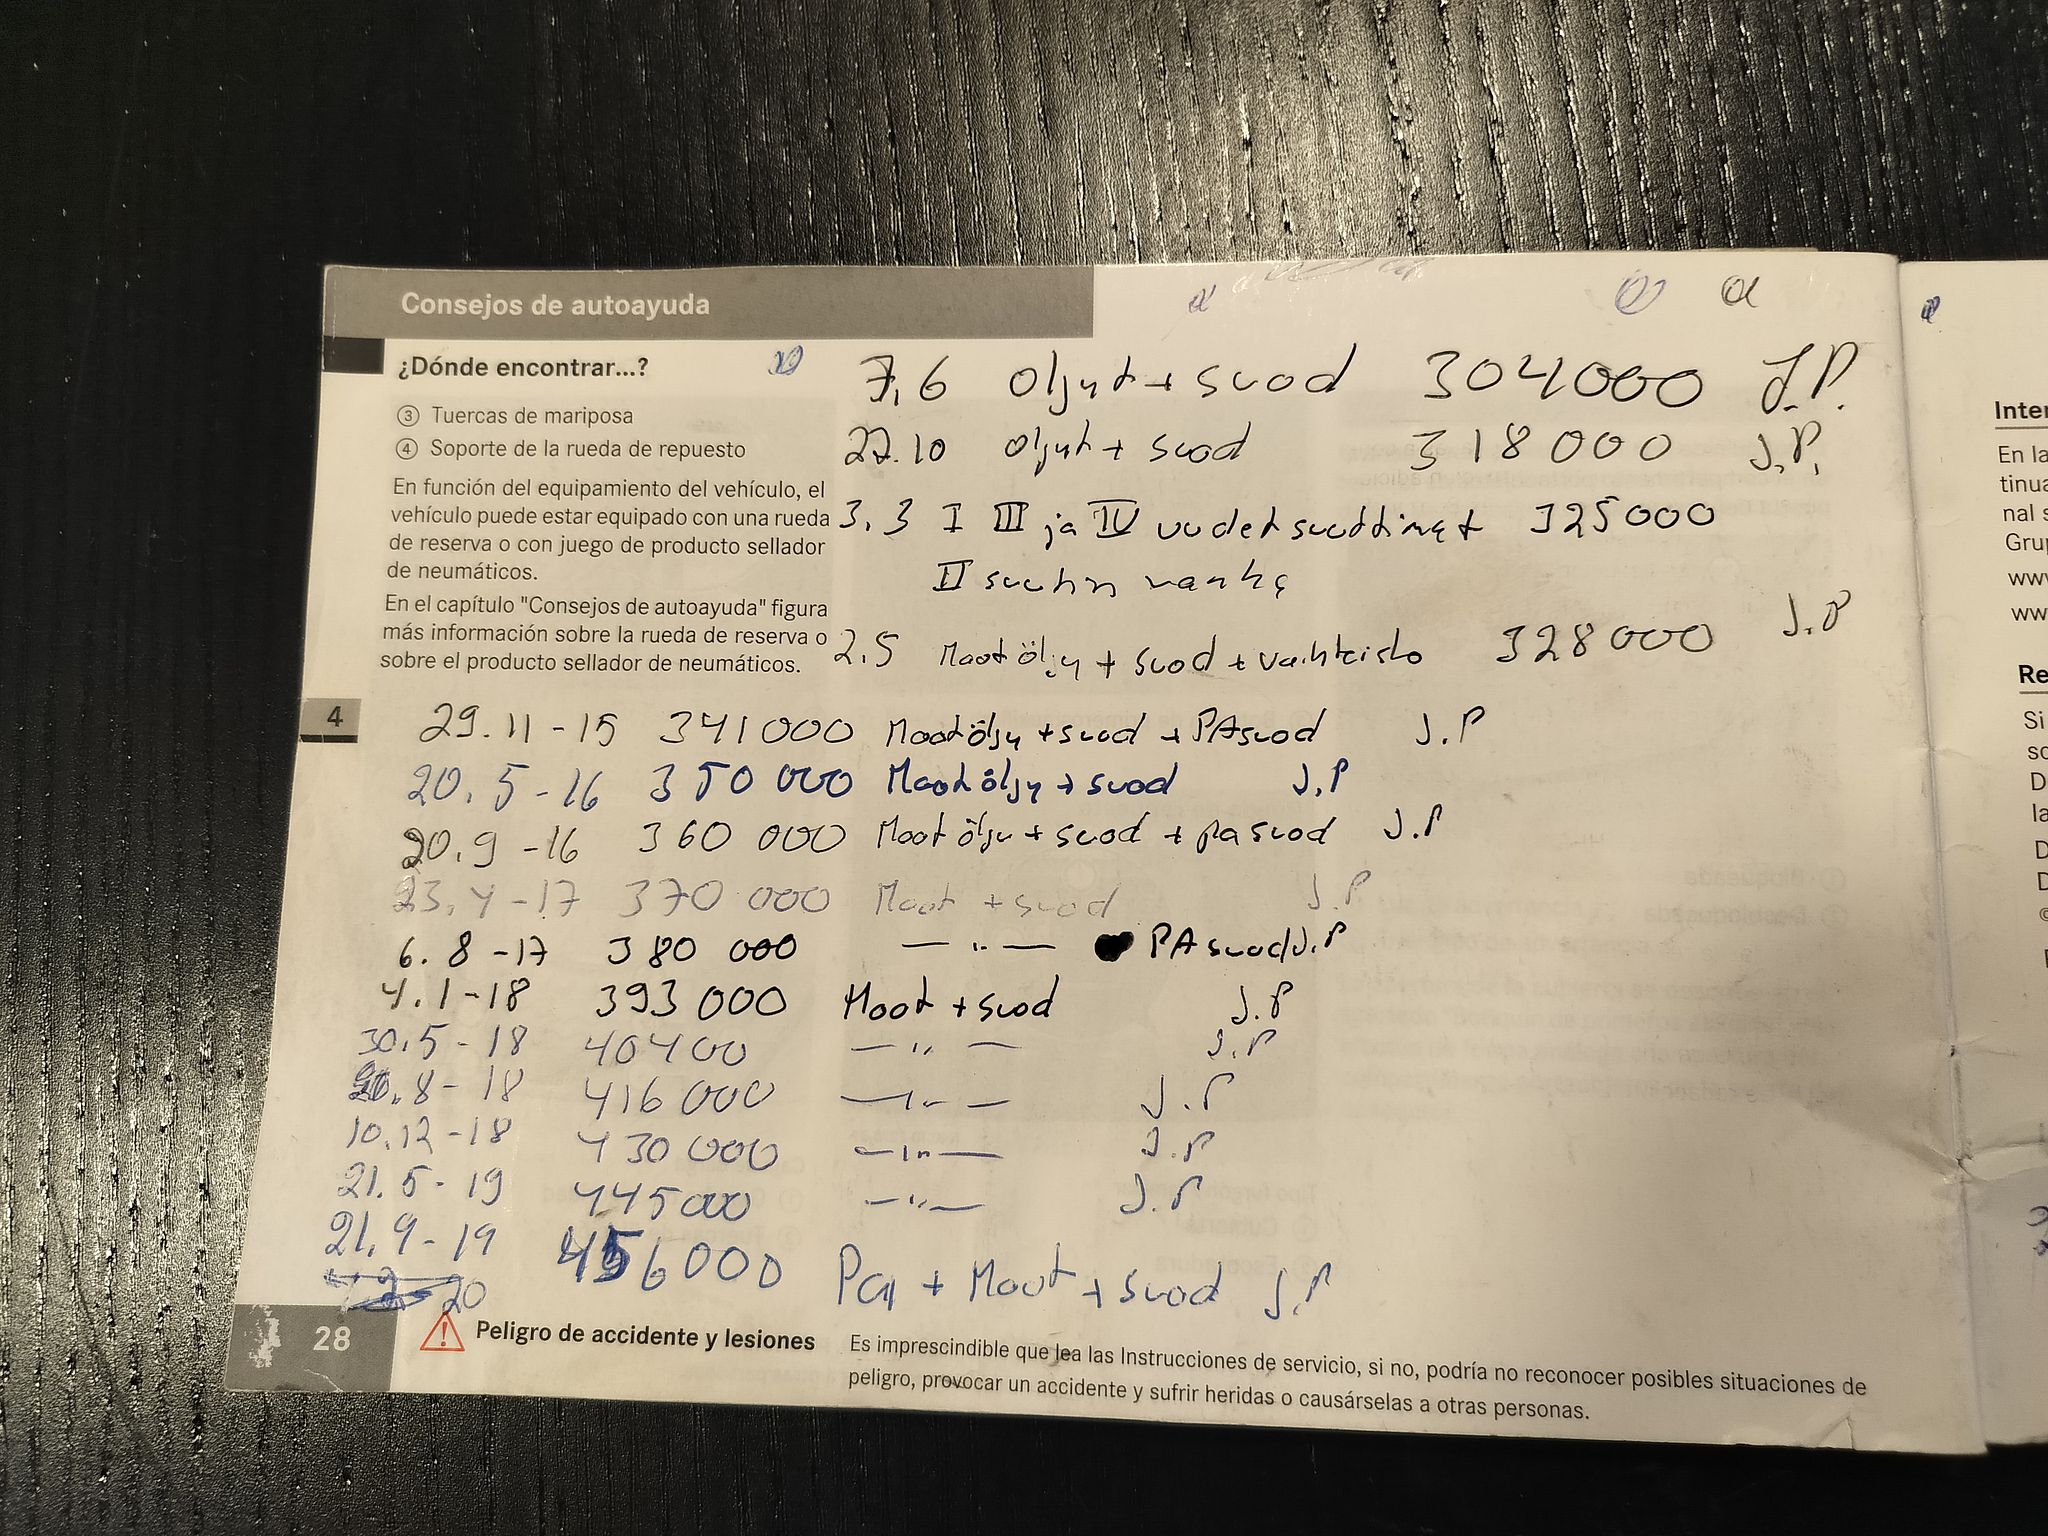 Consejos de autoayuda
¿Dónde encontrar...?
③ Tuercas de mariposa
④ Soporte de la rueda de repuesto
En función del equipamiento del vehículo, el
vehículo puede estar equipado con una rueda
de reserva o con juego de producto sellador
de neumáticos.
En el capítulo "Consejos de autoayuda" figura
más información sobre la rueda de reserva o
sobre el producto sellador de neumáticos.
7.6 öljyt + suod 304000 J.P.
27.10 öljyt + suod 318000 J.P.
3.3 I III ja IV uudet suuttimet 325000
II suutin vanha
2.5 Moot öljy + suod + vaihteisto 328000 J.P
4
29.11-15 341000 Moot öljy + suod + PAsuod J.P
20.5-16 350 000 Moot öljy + suod J.P
20.9-16 360 000 Moot öljy + suod + pa suod J.P
23.4-17 370 000 Moot + suod J.P
6.8-17 380 000 — " — PA suod J.P
4.1-18 393 000 Moot + suod J.P
30.5-18 40400 — " — J.P
.8-18 416 000 — " — J.P
10.12-18 430 000 — " — J.P
21.5-19 445000 — " — J.P
21.9-19 456000 Pa + Moot + suod J.P
20
28
Peligro de accidente y lesiones
Es imprescindible que lea las Instrucciones de servicio, si no, podría no reconocer posibles situaciones de
peligro, provocar un accidente y sufrir heridas o causárselas a otras personas.
Inter
En la
tinua
nal s
Grup
www
ww
Re
Si
so
D
la
D
D
©